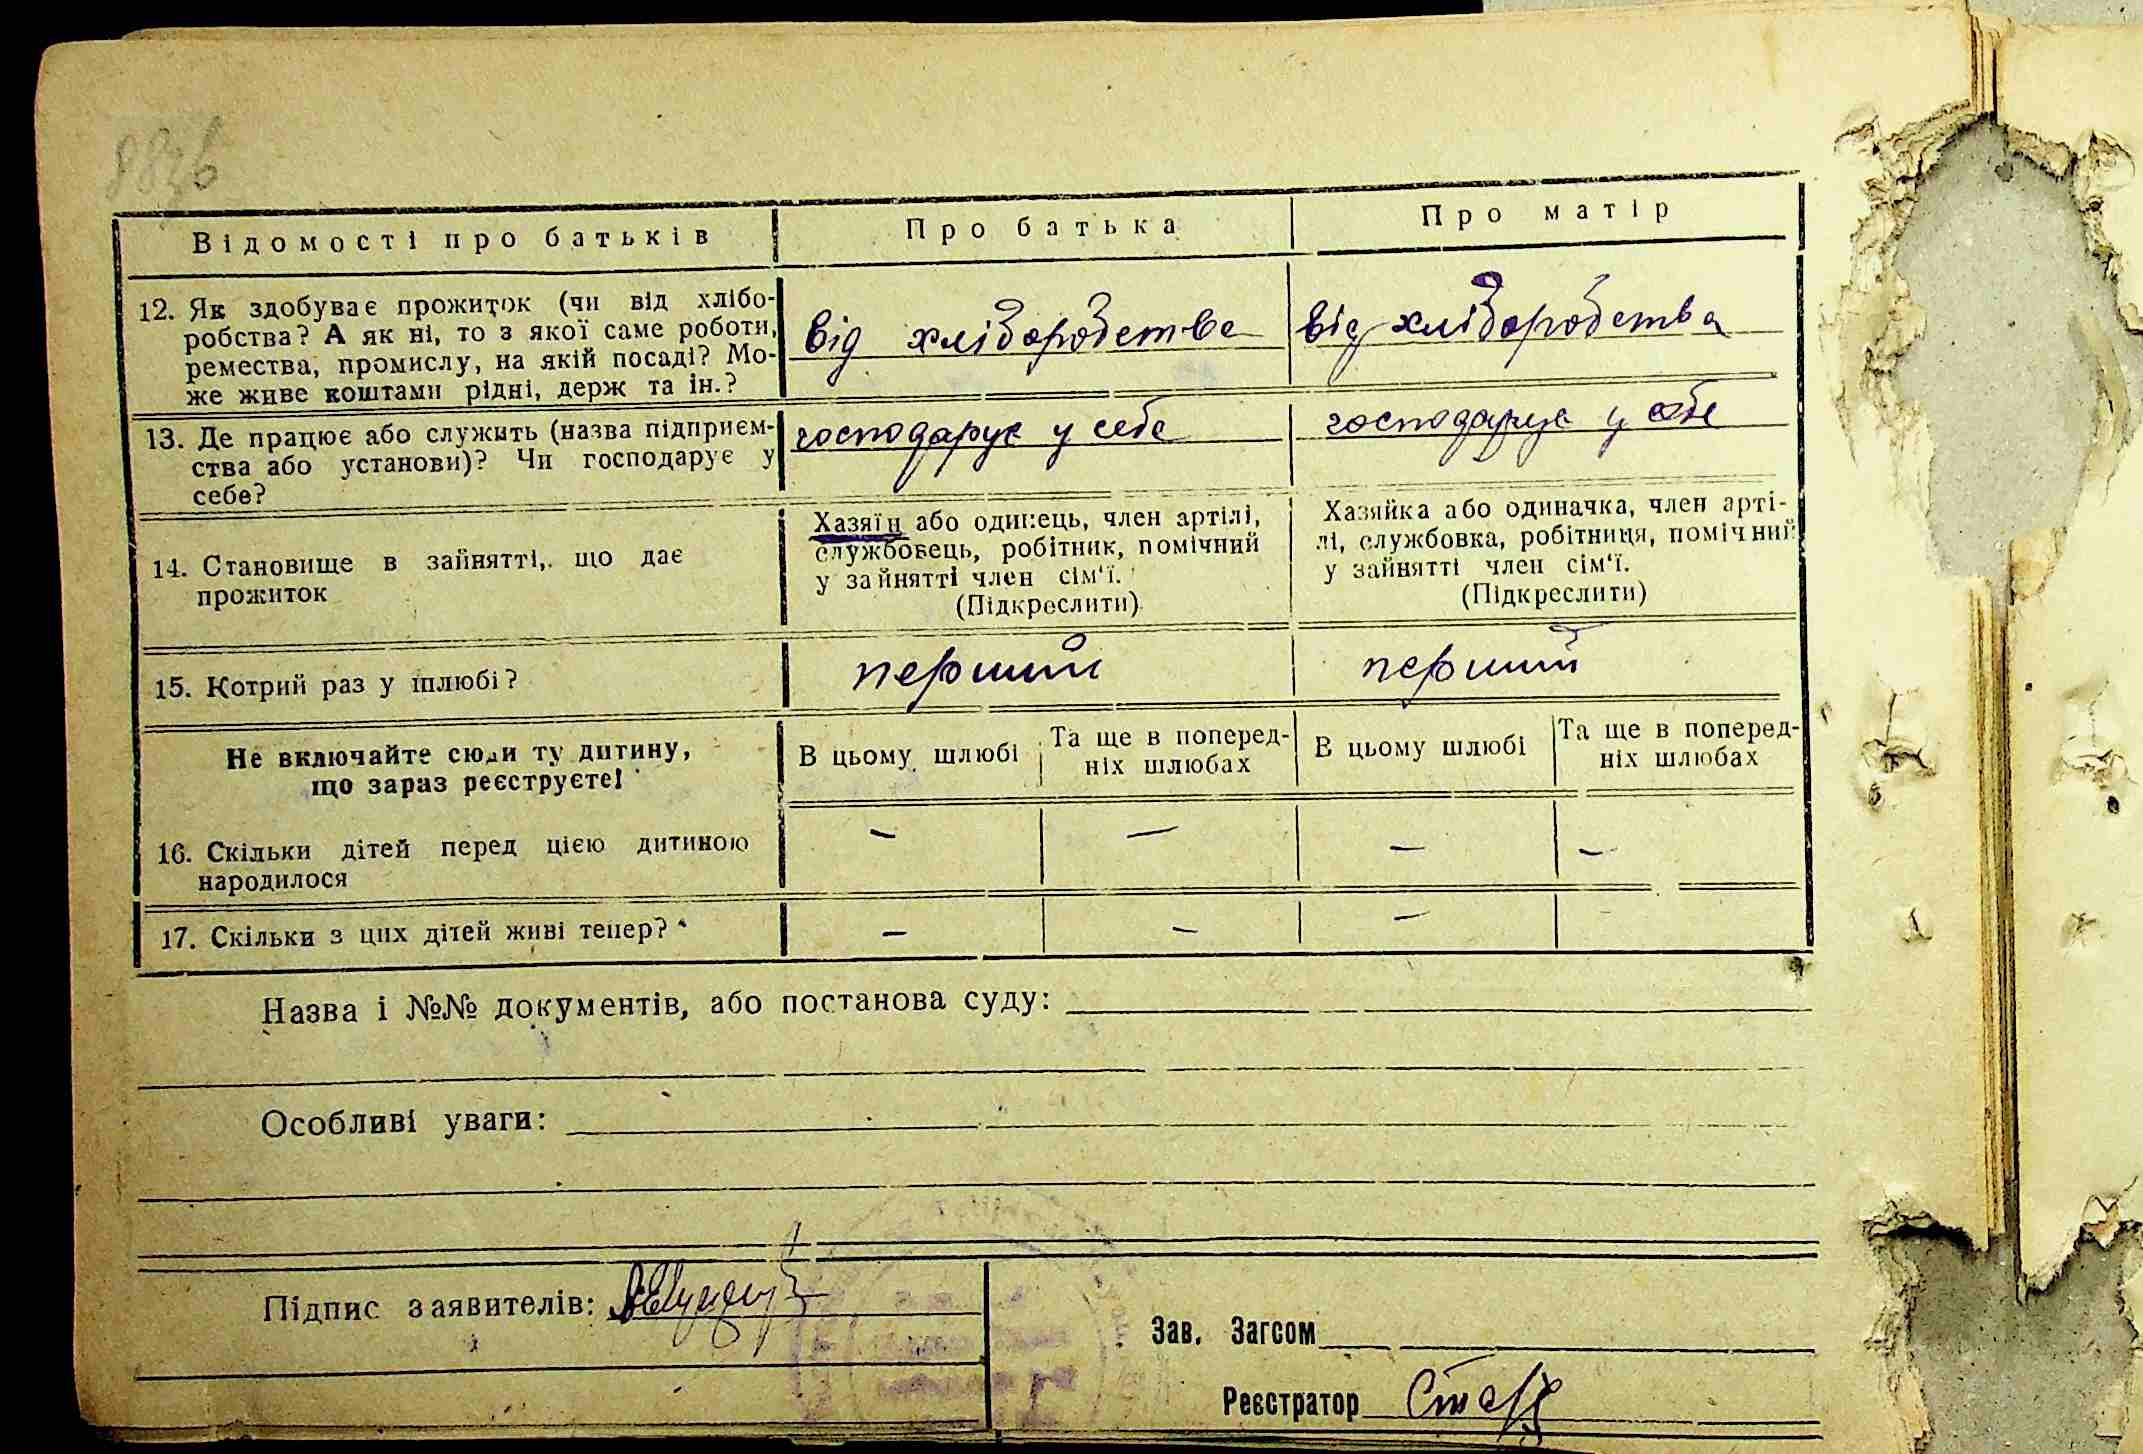 883б
Відомості про батьків
Про батька
Про матір
12. Як здобуває прожиток (чи від хлібо-
робства? А як ні, то з якої саме роботи,
ремества, промислу, на якій посаді? Мо-
же живе коштами рідні, держ та ін.?
від хліборобства
від хліборобства
13. Де працює або служить (назва підприєм-
ства або установи)? Чи господарує у
себе?
господарує у себе
господарує у себе
14. Становище в зайнятті, що дає
прожиток
Хазяїн або одинець, член артілі,
службовець, робітник, помічний
у зайнятті член сім'ї.
(Підкреслити)
Хазяйка або одиначка, член арті-
лі, службовка, робітниця, помічний
у зайнятті член сім'ї.
(Підкреслити)
15. Котрий раз у шлюбі?
перший
перший
Не включайте сюди ту дитину,
що зараз реєструєте!
В цьому шлюбі
Та ще в поперед-
ніх шлюбах
В цьому шлюбі
Та ще в поперед-
ніх шлюбах
16. Скільки дітей перед цією дитиною
народилося
— — — —
17. Скільки з цих дітей живі тепер?
— — —
Назва і №№ документів, або постанова суду:
Особливі уваги:
Підпис заявителів:
Зав. Загсом
Реєстратор